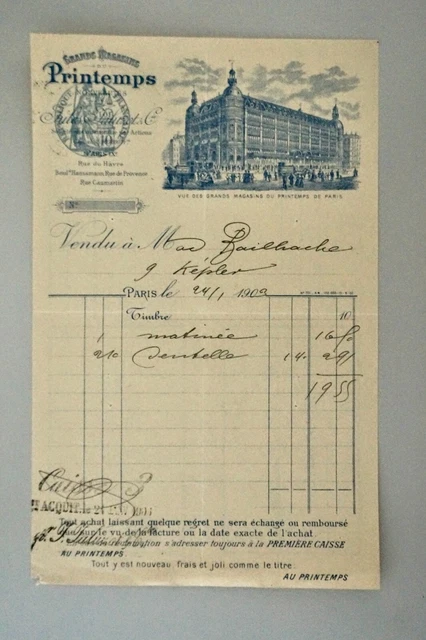 GRANDS MAGASINS
Printemps
Rue du Havre
Boulᵈ Haussmann, Rue de Provence
Rue Caumartin
VUE DES GRANDS MAGASINS DU PRINTEMPS DE PARIS
Nº
Vendu à M de Bailhache
9 Képler
PARIS le 24/1 1909
Timbre 10
1 matinée 16 50
2 10 dentelle 14 0 291
19 55
Caisse 3
ACQUIT
Tout achat laissant quelque regret ne sera échangé ou remboursé
que sur le vu de la facture ou la date exacte de l'achat.
s'adresser toujours à la PREMIÈRE CAISSE
AU PRINTEMPS
Tout y est nouveau frais et joli comme le titre:
AU PRINTEMPS